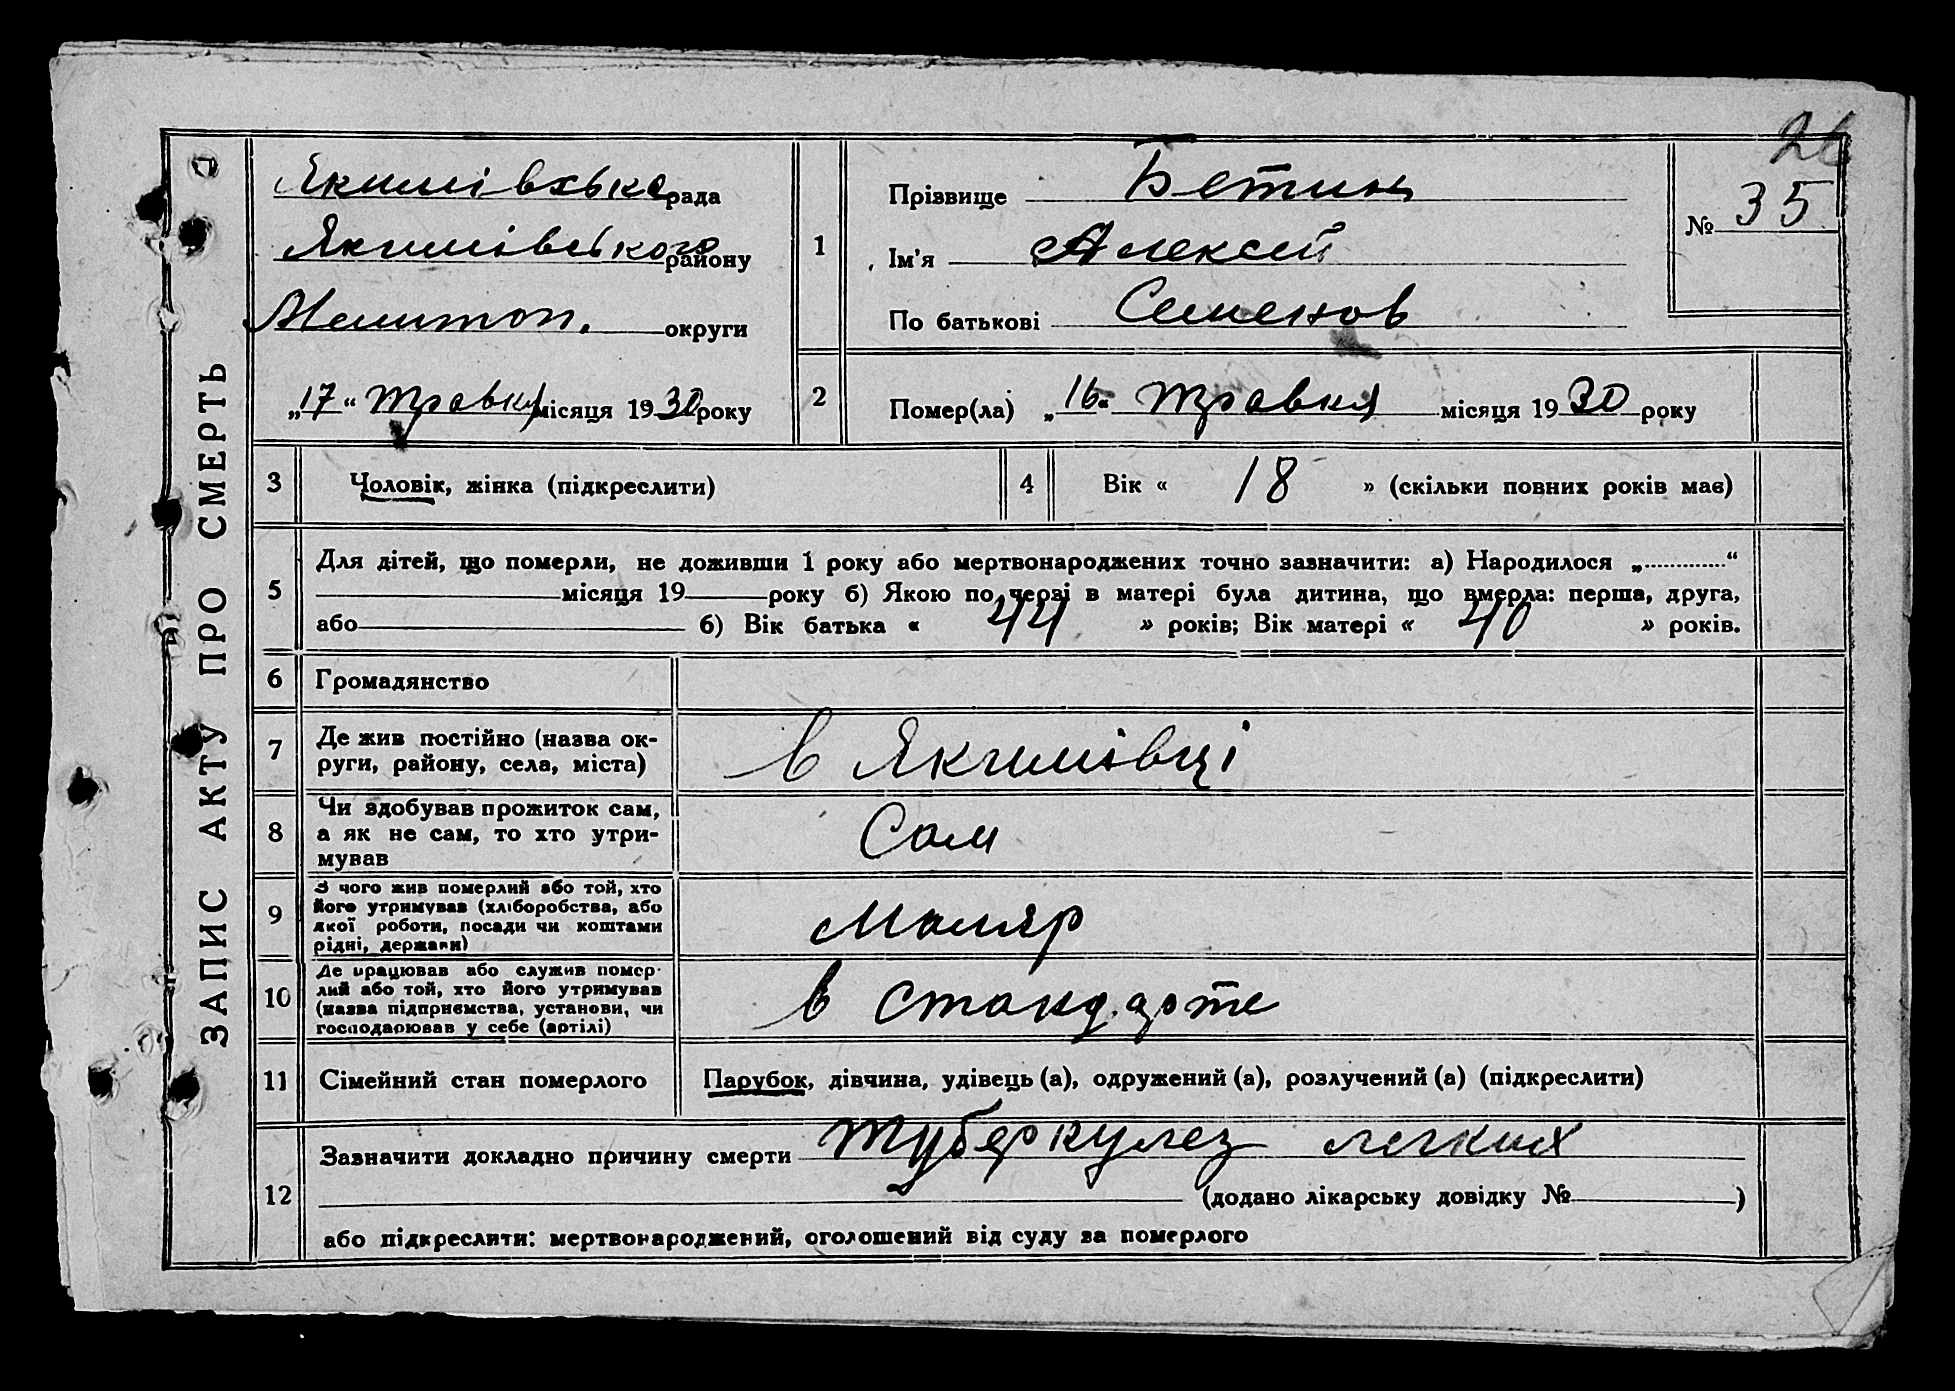 26
ЗАПИС АКТУ ПРО СМЕРТЬ
Якимівська рада
Якимівського району
Мелитоп. округи
„17“ травня місяця 1930 року
1
Прізвище Бетин
Ім'я Алексей
По батькові Семенов
№ 35
2
Помер(ла) „16“ травня місяця 1930 року
3 Чоловік, жінка (підкреслити)
4 Вік « 18 » (скільки повних років має)
5
Для дітей, що померли, не доживши 1 року або мертвонароджених точно зазначити: а) Народилося „..............“
місяця 19 року б) Якою по черзі в матері була дитина, що вмерла: перша, друга,
або б) Вік батька « 44 » років; Вік матері « 40 » років.
6 Громадянство
7
Де жив постійно (назва ок-
руги, району, села, міста)
в Якимівці
8
Чи здобував прожиток сам,
а як не сам, то хто утри-
мував
Сам
9
З чого жив померлий або той, хто
його утримував (хліборобства, або
якої роботи, посади чи коштами
рідні, держави)
Маляр
10
Де працював або служив помер-
лий або той, хто його утримував
(назва підприємства, установи, чи
господарював у себе (артілі)
в стандарте
11 Сімейний стан померлого
Парубок, дівчина, удівець (а), одружений (а), розлучений (а) (підкреслити)
12
Зазначити докладно причину смерти туберкулез легких
(додано лікарську довідку № )
або підкреслити: мертвонароджений, оголошений від суду за померлого